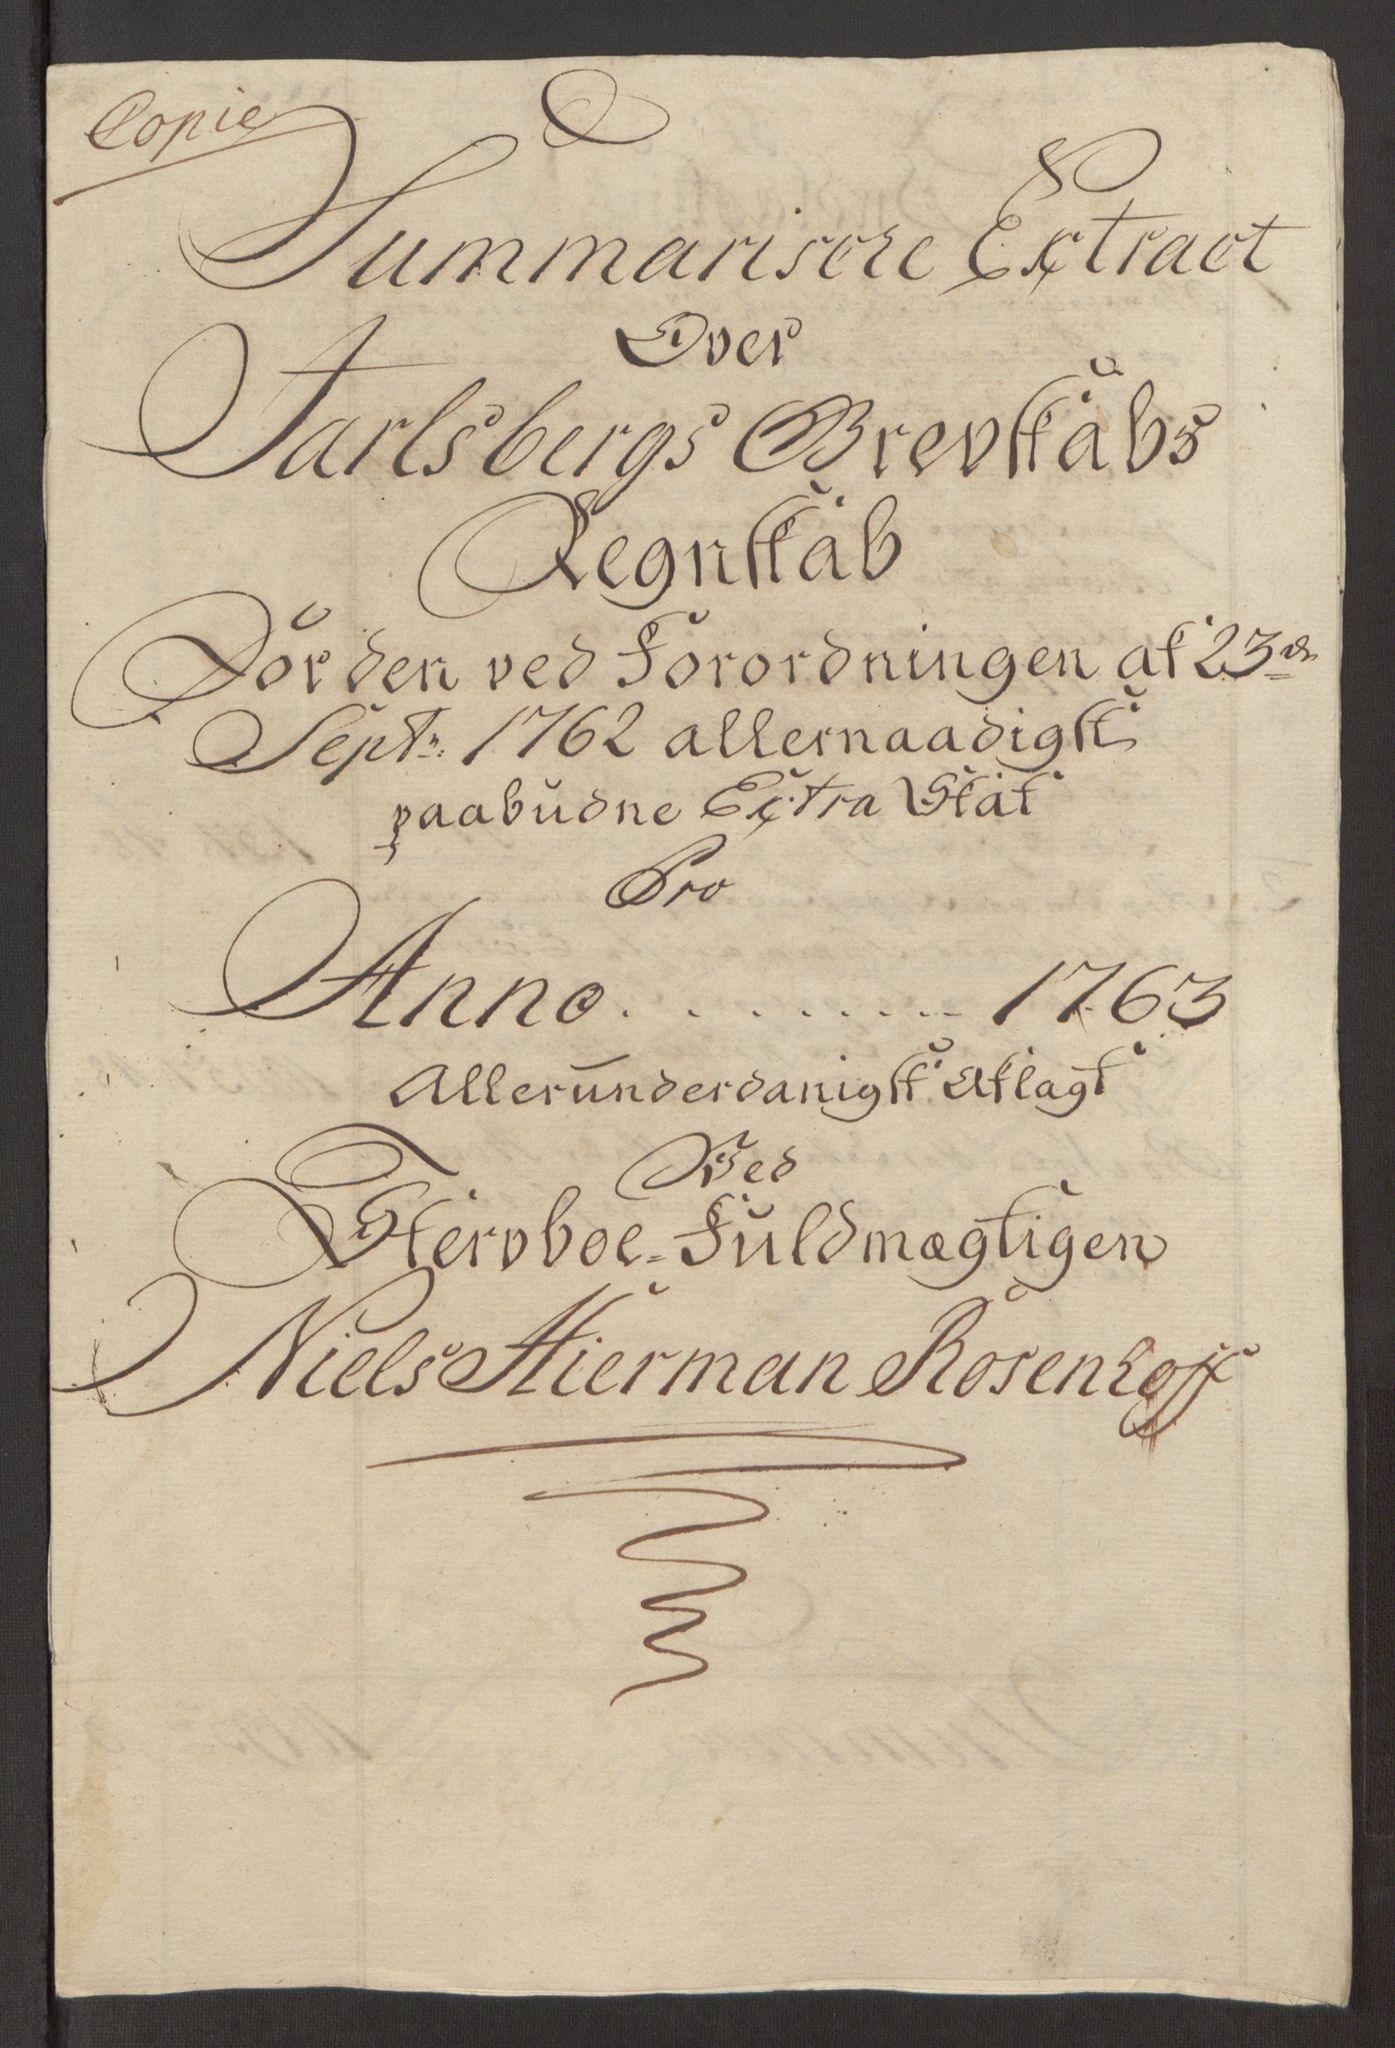 Copie
Summariscke Extract
Over
Jarlsbergs Grevskabs
Regnskab
For den ved Forordningen af 23de
Septr: 1762 allernaadigst
paabudne Extra Skat
Pro
Anno . . . . . . . . . 1763
Allerunderdanigst Aflagt
Ved
Stervboe-Fuldmægtigen
Niels Hierman Rosenhoff